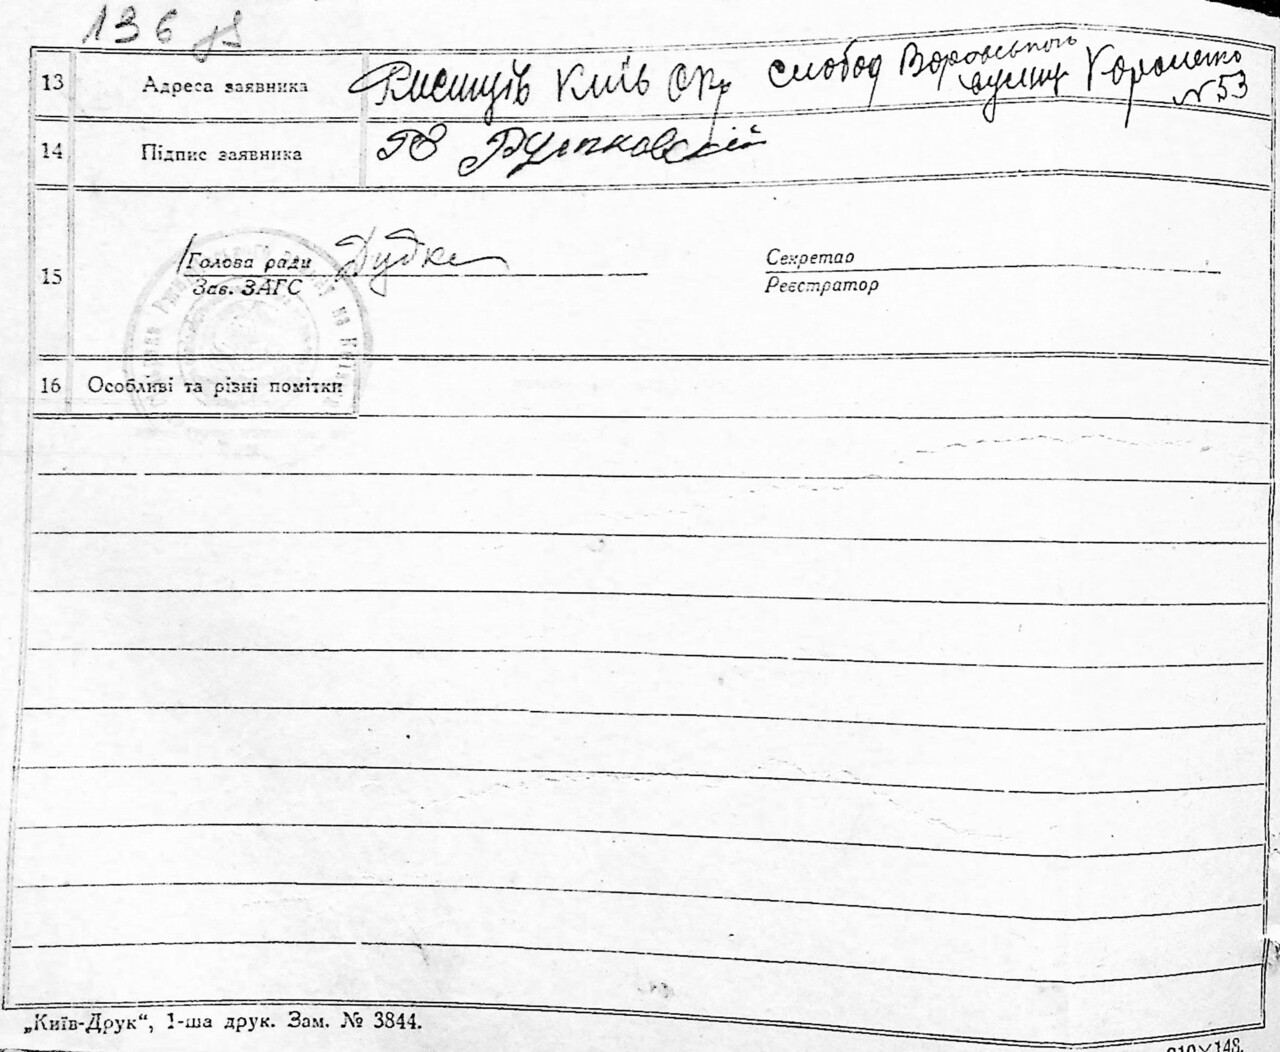 136
13 Адреса заявника Київ Окр слобод Воровського
вулиц Короленко
№ 53
14 Підпис заявника
15 Голова ради Дудка Секретар
Зав. ЗАГС Реєстратор
16 Особливі та різні помітки
„Київ-Друк“, 1-ша друк. Зам. № 3844.
210×148.